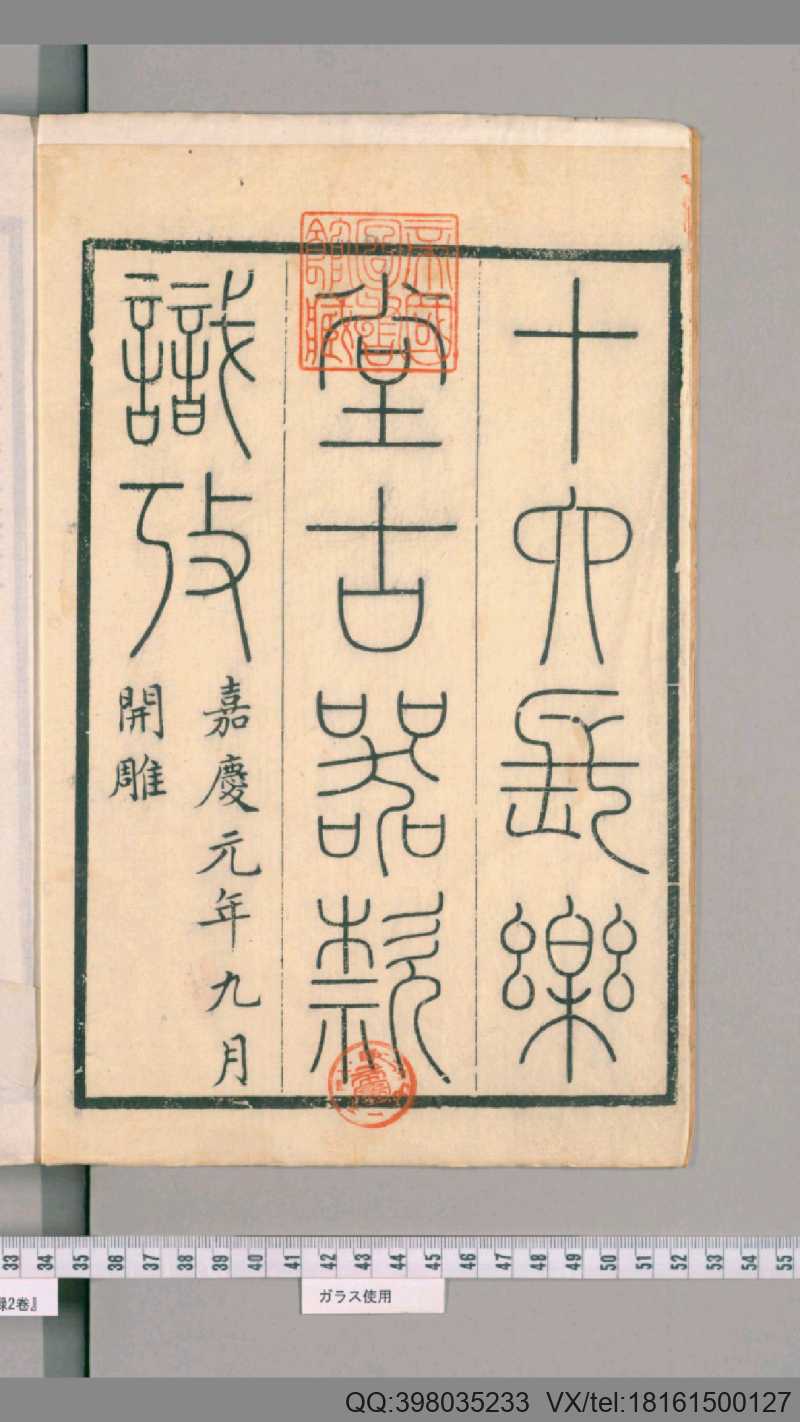 十六長樂
堂古器款
識攷
嘉慶元年九月
開雕
帝國圖書館藏
33 34 35 36 37 38 39 40 41 42 43 44 45 46 47 48 49 50 51 52 53 54 55
2巻』
ガラス使用
QQ:398035233 VX/tel:18161500127